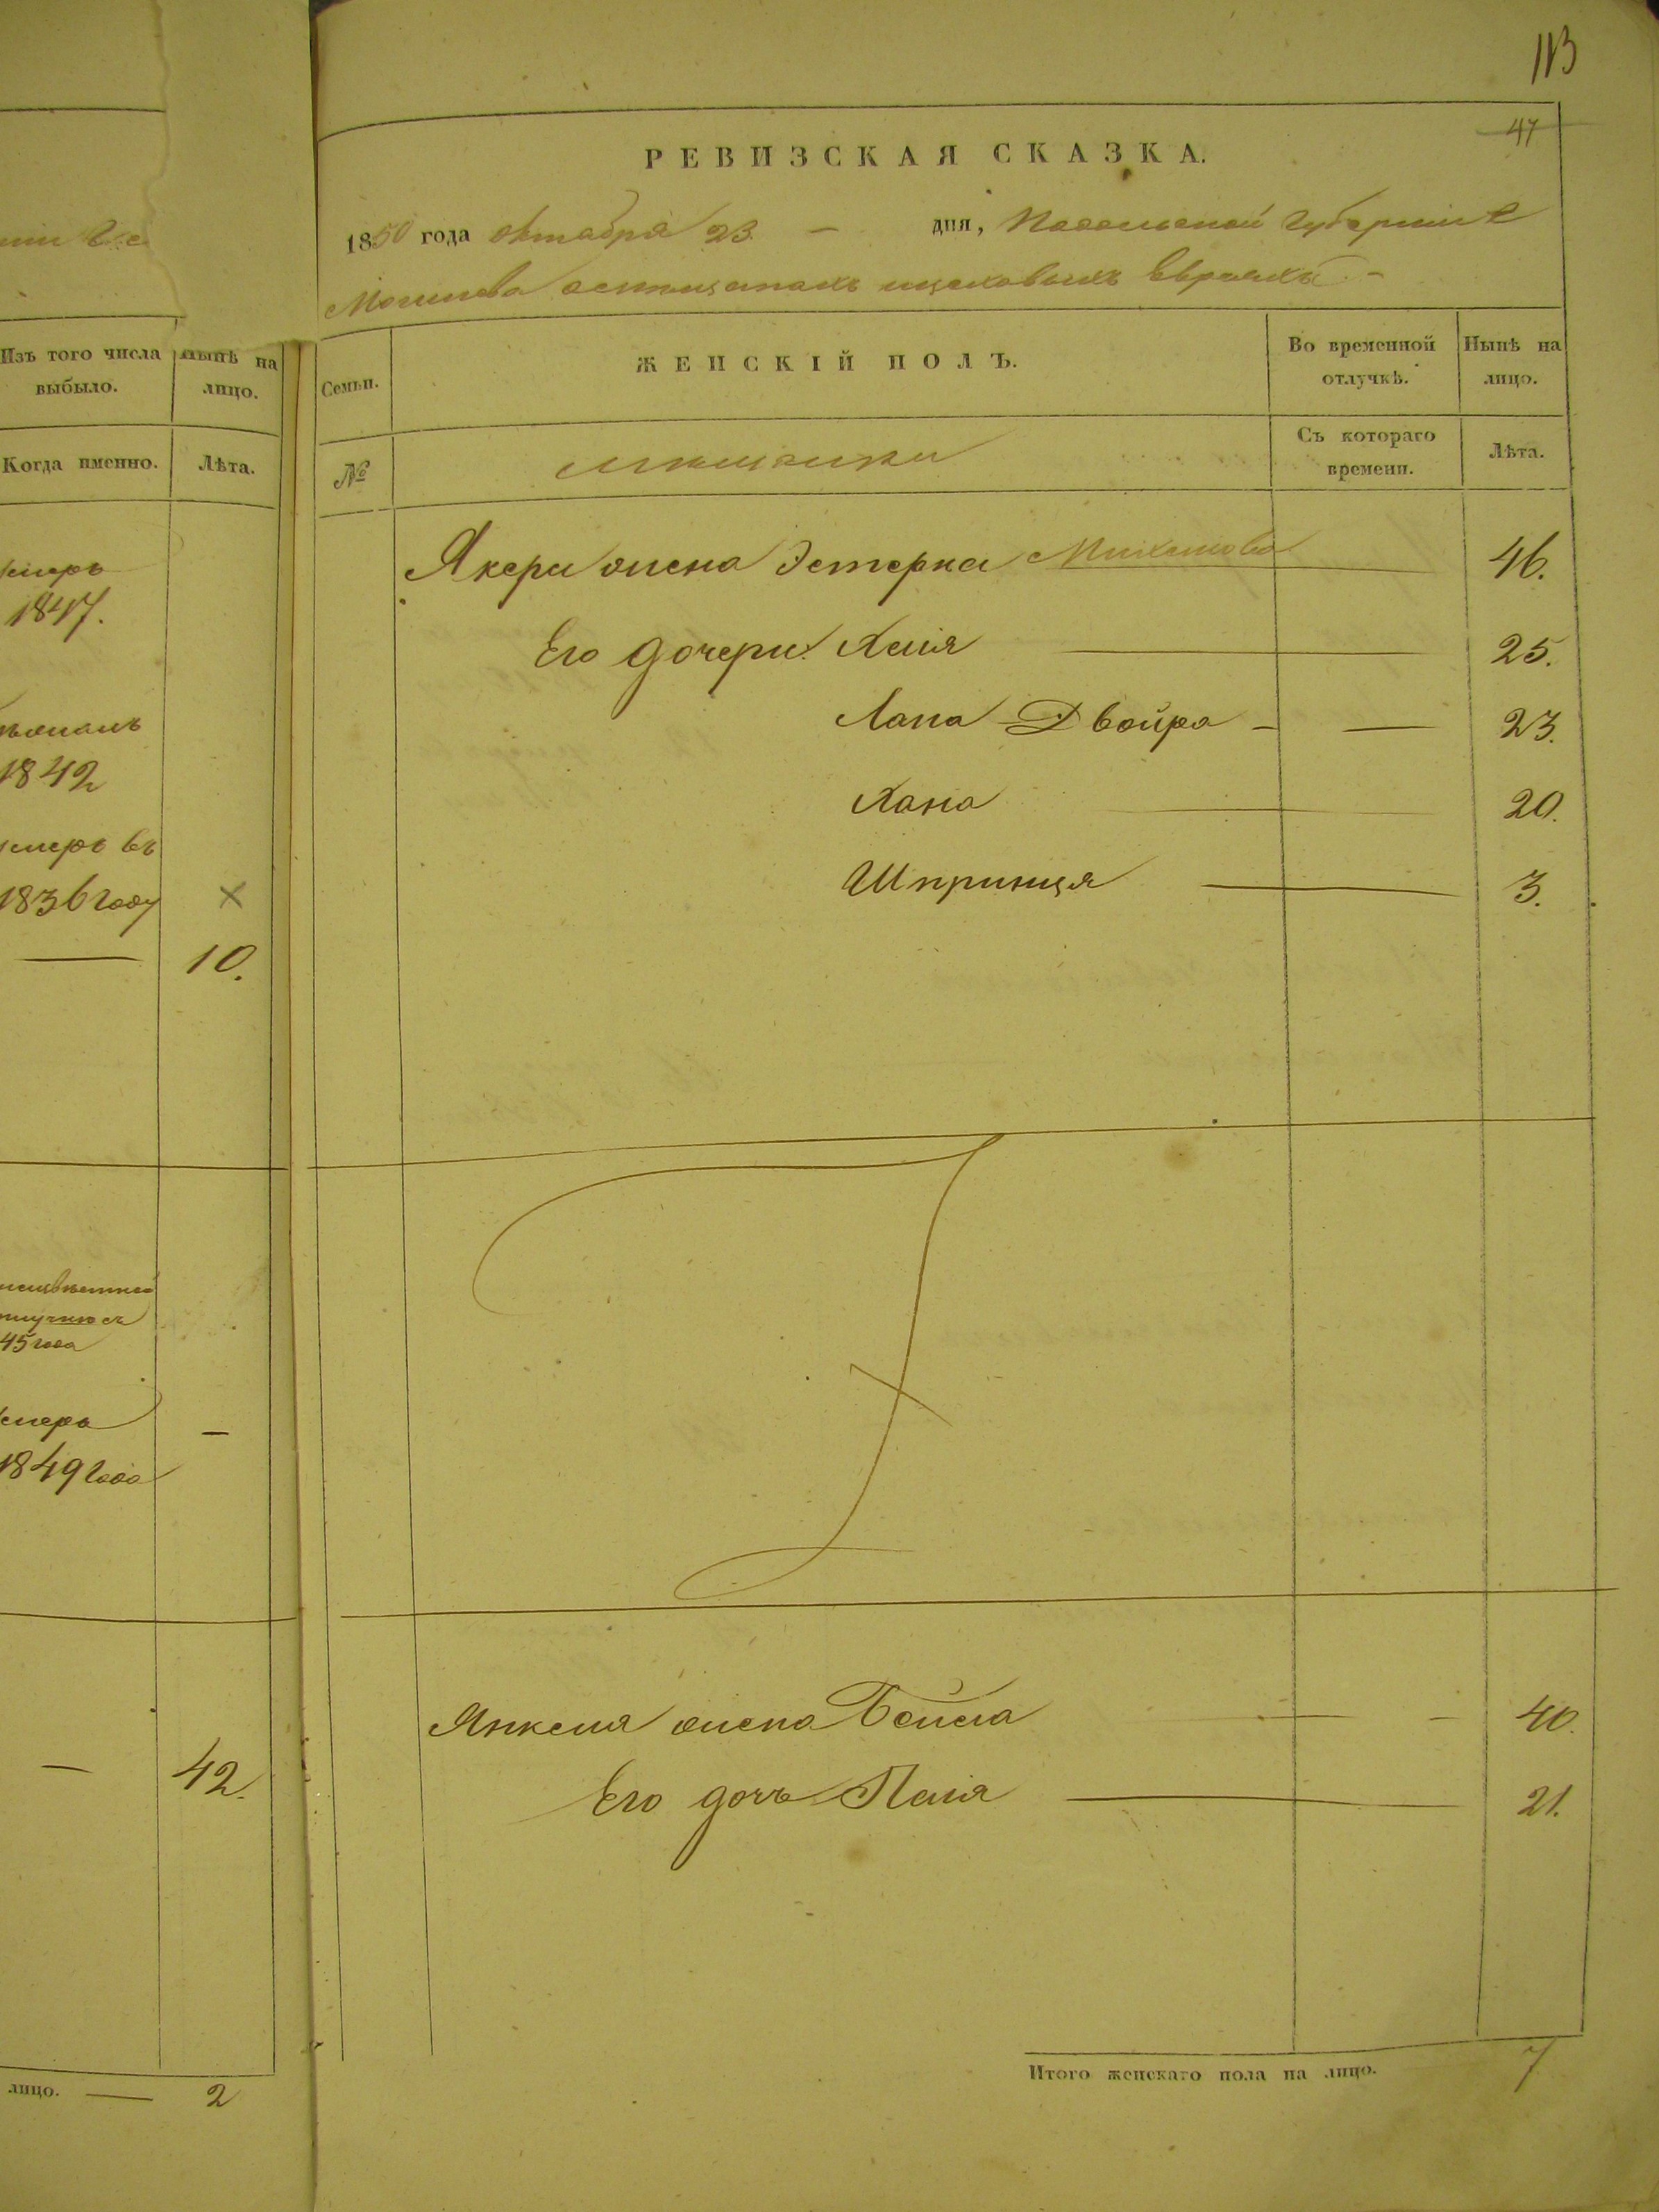 113
47
РЕВИЗСКАЯ СКАЗКА.
1850 года октября 23 — дня, Подольской Губерніи
Могилева цеховыхъ Евреяхъ
Изъ того числа выбыло.
Нынѣ на лицо.
Когда именно.
Лѣта.
умеръ
1847.
1842
умеръ въ
1836 году ×
— 10.
45 года
умеръ —
1849 года
— 42.
лицо. — 2
Семьи.
ЖЕНСКІЙ ПОЛЪ.
Во временной отлучкѣ.
Нынѣ на лицо.
№
мѣщанки
Съ котораго времени.
Лѣта.
жена Эстерка — 46.
Его дочери: Хая — 25.
Двойра — — 23.
Хана — 20.
Шпринця — 3.
Янкеля жена Бейла — — 40.
Его дочь — 21.
Итого женскаго пола на лицо. 7